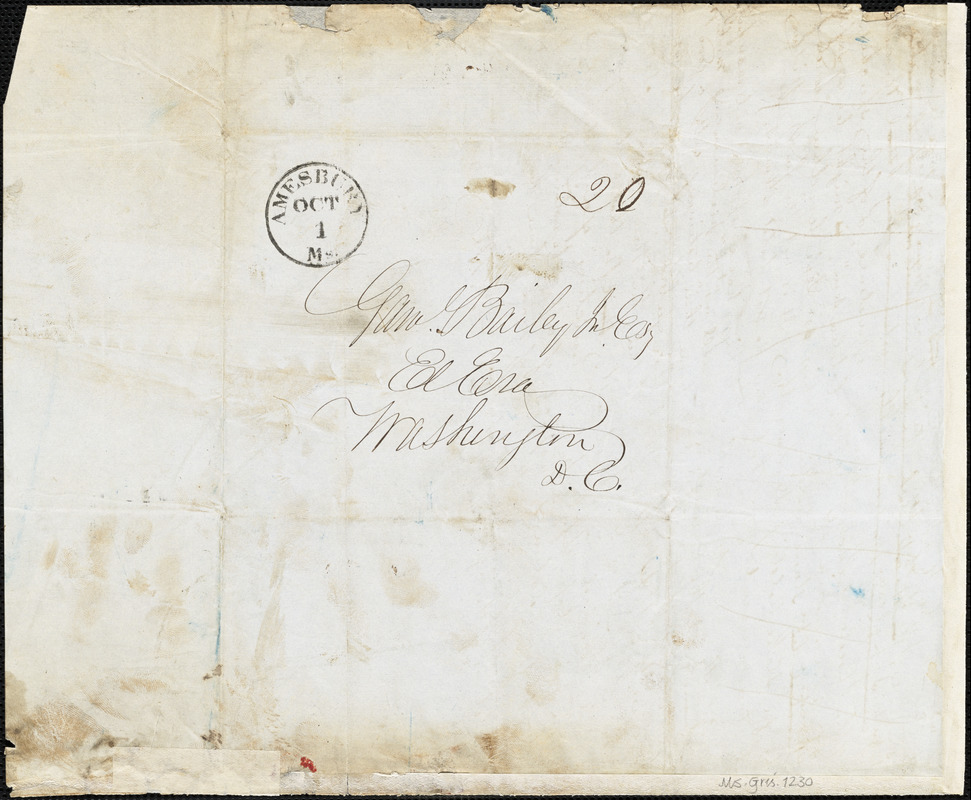 AMESBURY
OCT
1
Ms.
20
Gam. Bailey Jr. Esq
Ed Era
Washington
D.C.
Ms. Gris. 1230